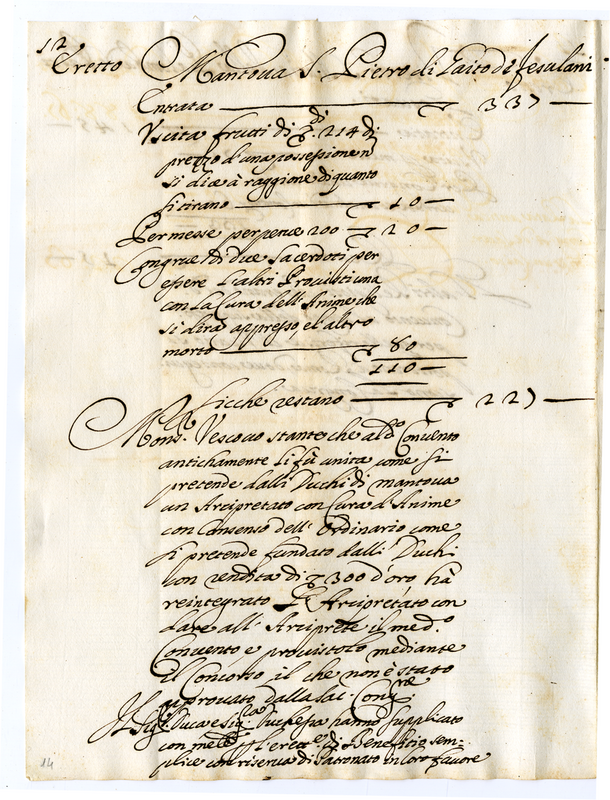 12
Eretto Mantova S. Pietro di Laito de Jesulani
Entrata — 337 —
Vscita frutti di 214 di
prezzo d'una possessione n
si dice à raggione di quanto
si tirano — 10 —
Per messe perpetue 200 — 20 —
Congrue di due Sacerdoti per
essere L'altri Provisti una
con La Cura dell'Anime che
si dirà appresso, el'altro
morto — 80
110 —
Sicche restano — 227 —
Mons. Vescovo stante che al do Convento
antichamente Li fù unita come si
pretende dalli Duchi di mantova
un Arcipretato con Cura d'Anime
con Consenso dell'Ordinario come
si pretende fundato dalli Duchi
con rendita di 300 d'oro hà
reintegrato L'Arcipretato con
dare all'Arciprete il med.o
Convento e provistolo mediante
il Concorso il che non è stato
approvato dalla Sac. Cong.ne
Il Sig.r Duca e Sig.ra Duchessa hanno supplicato
con di Beneficio sem=
plice con riserva di Patronato in loro favore
14